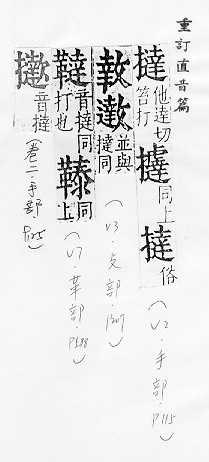 重訂直音篇
撻他達切笞打㩉同上撻俗
(V2.手部.P115)
並與撻同
(V3.攴部.P207)
韃音撻同打也同上
(V7.革部.P288)
音撻
(卷二.手部.P125)